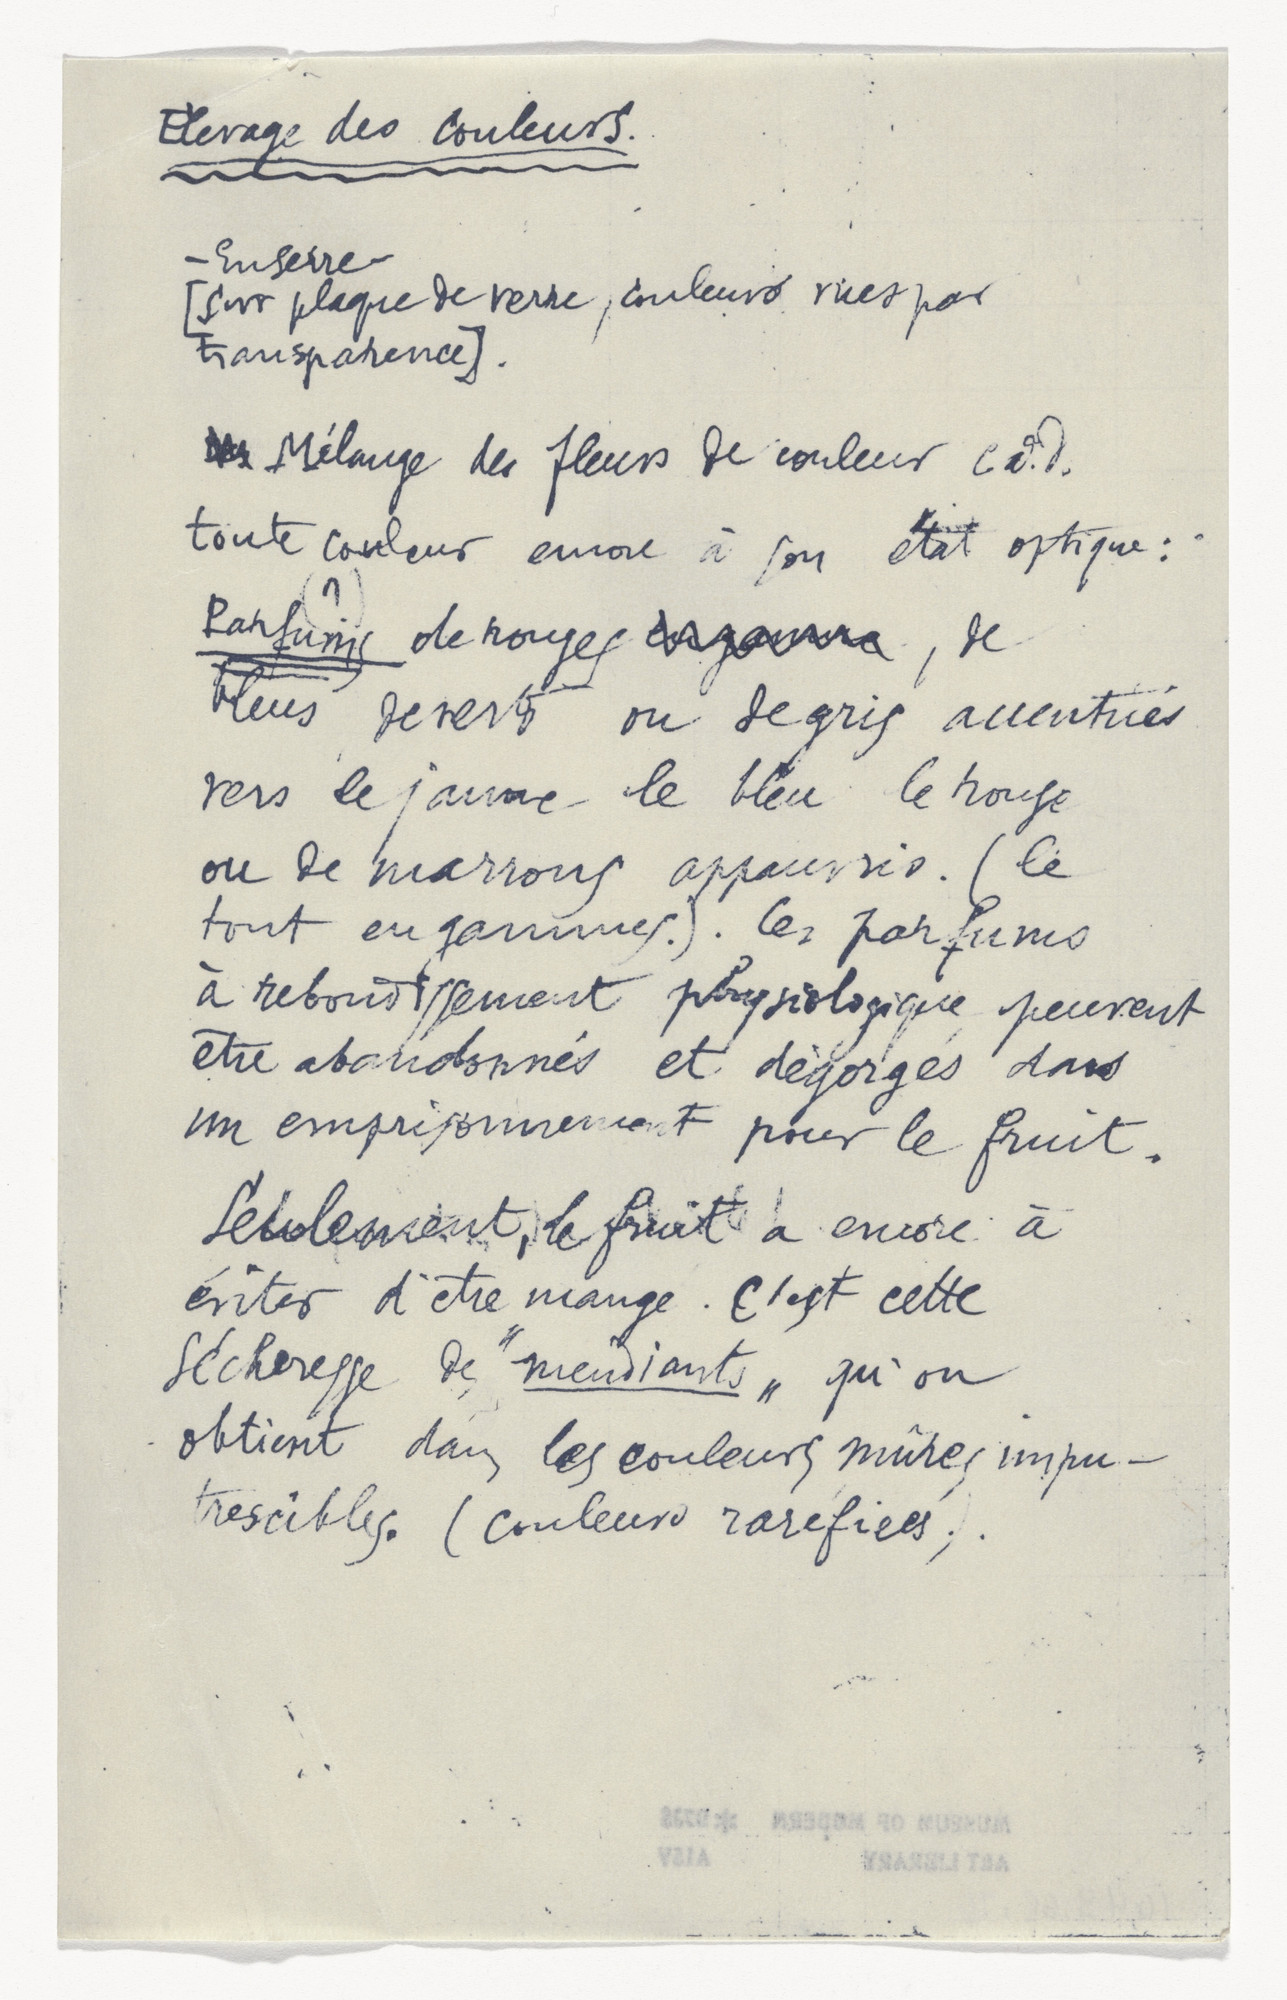 Elevage des couleurs.
– En serre –
[sur plaque de verre, couleurs vues par
transparence].
Mélange des fleurs de couleur c à. d.
toute couleur encore à son état optique :
(?)
Parfums de rouges en gamme, de
bleus de verts ou de gris accentués
vers le jaune le bleu le rouge
ou de marrons appauvris. (le
tout en gammes.). Ces parfums
à rebondissement physiologique peuvent
être abandonnés et dégorgés dans
un emprisonnement pour le fruit.
Seulement, le fruit a encore à
éviter d'être mangé. C'est cette
sécheresse de "mendiants" qu'on
obtient dans les couleurs mûres impu–
trescibles. (couleurs raréfiées.).
MUSEUM OF MODERN
ART LIBRARY